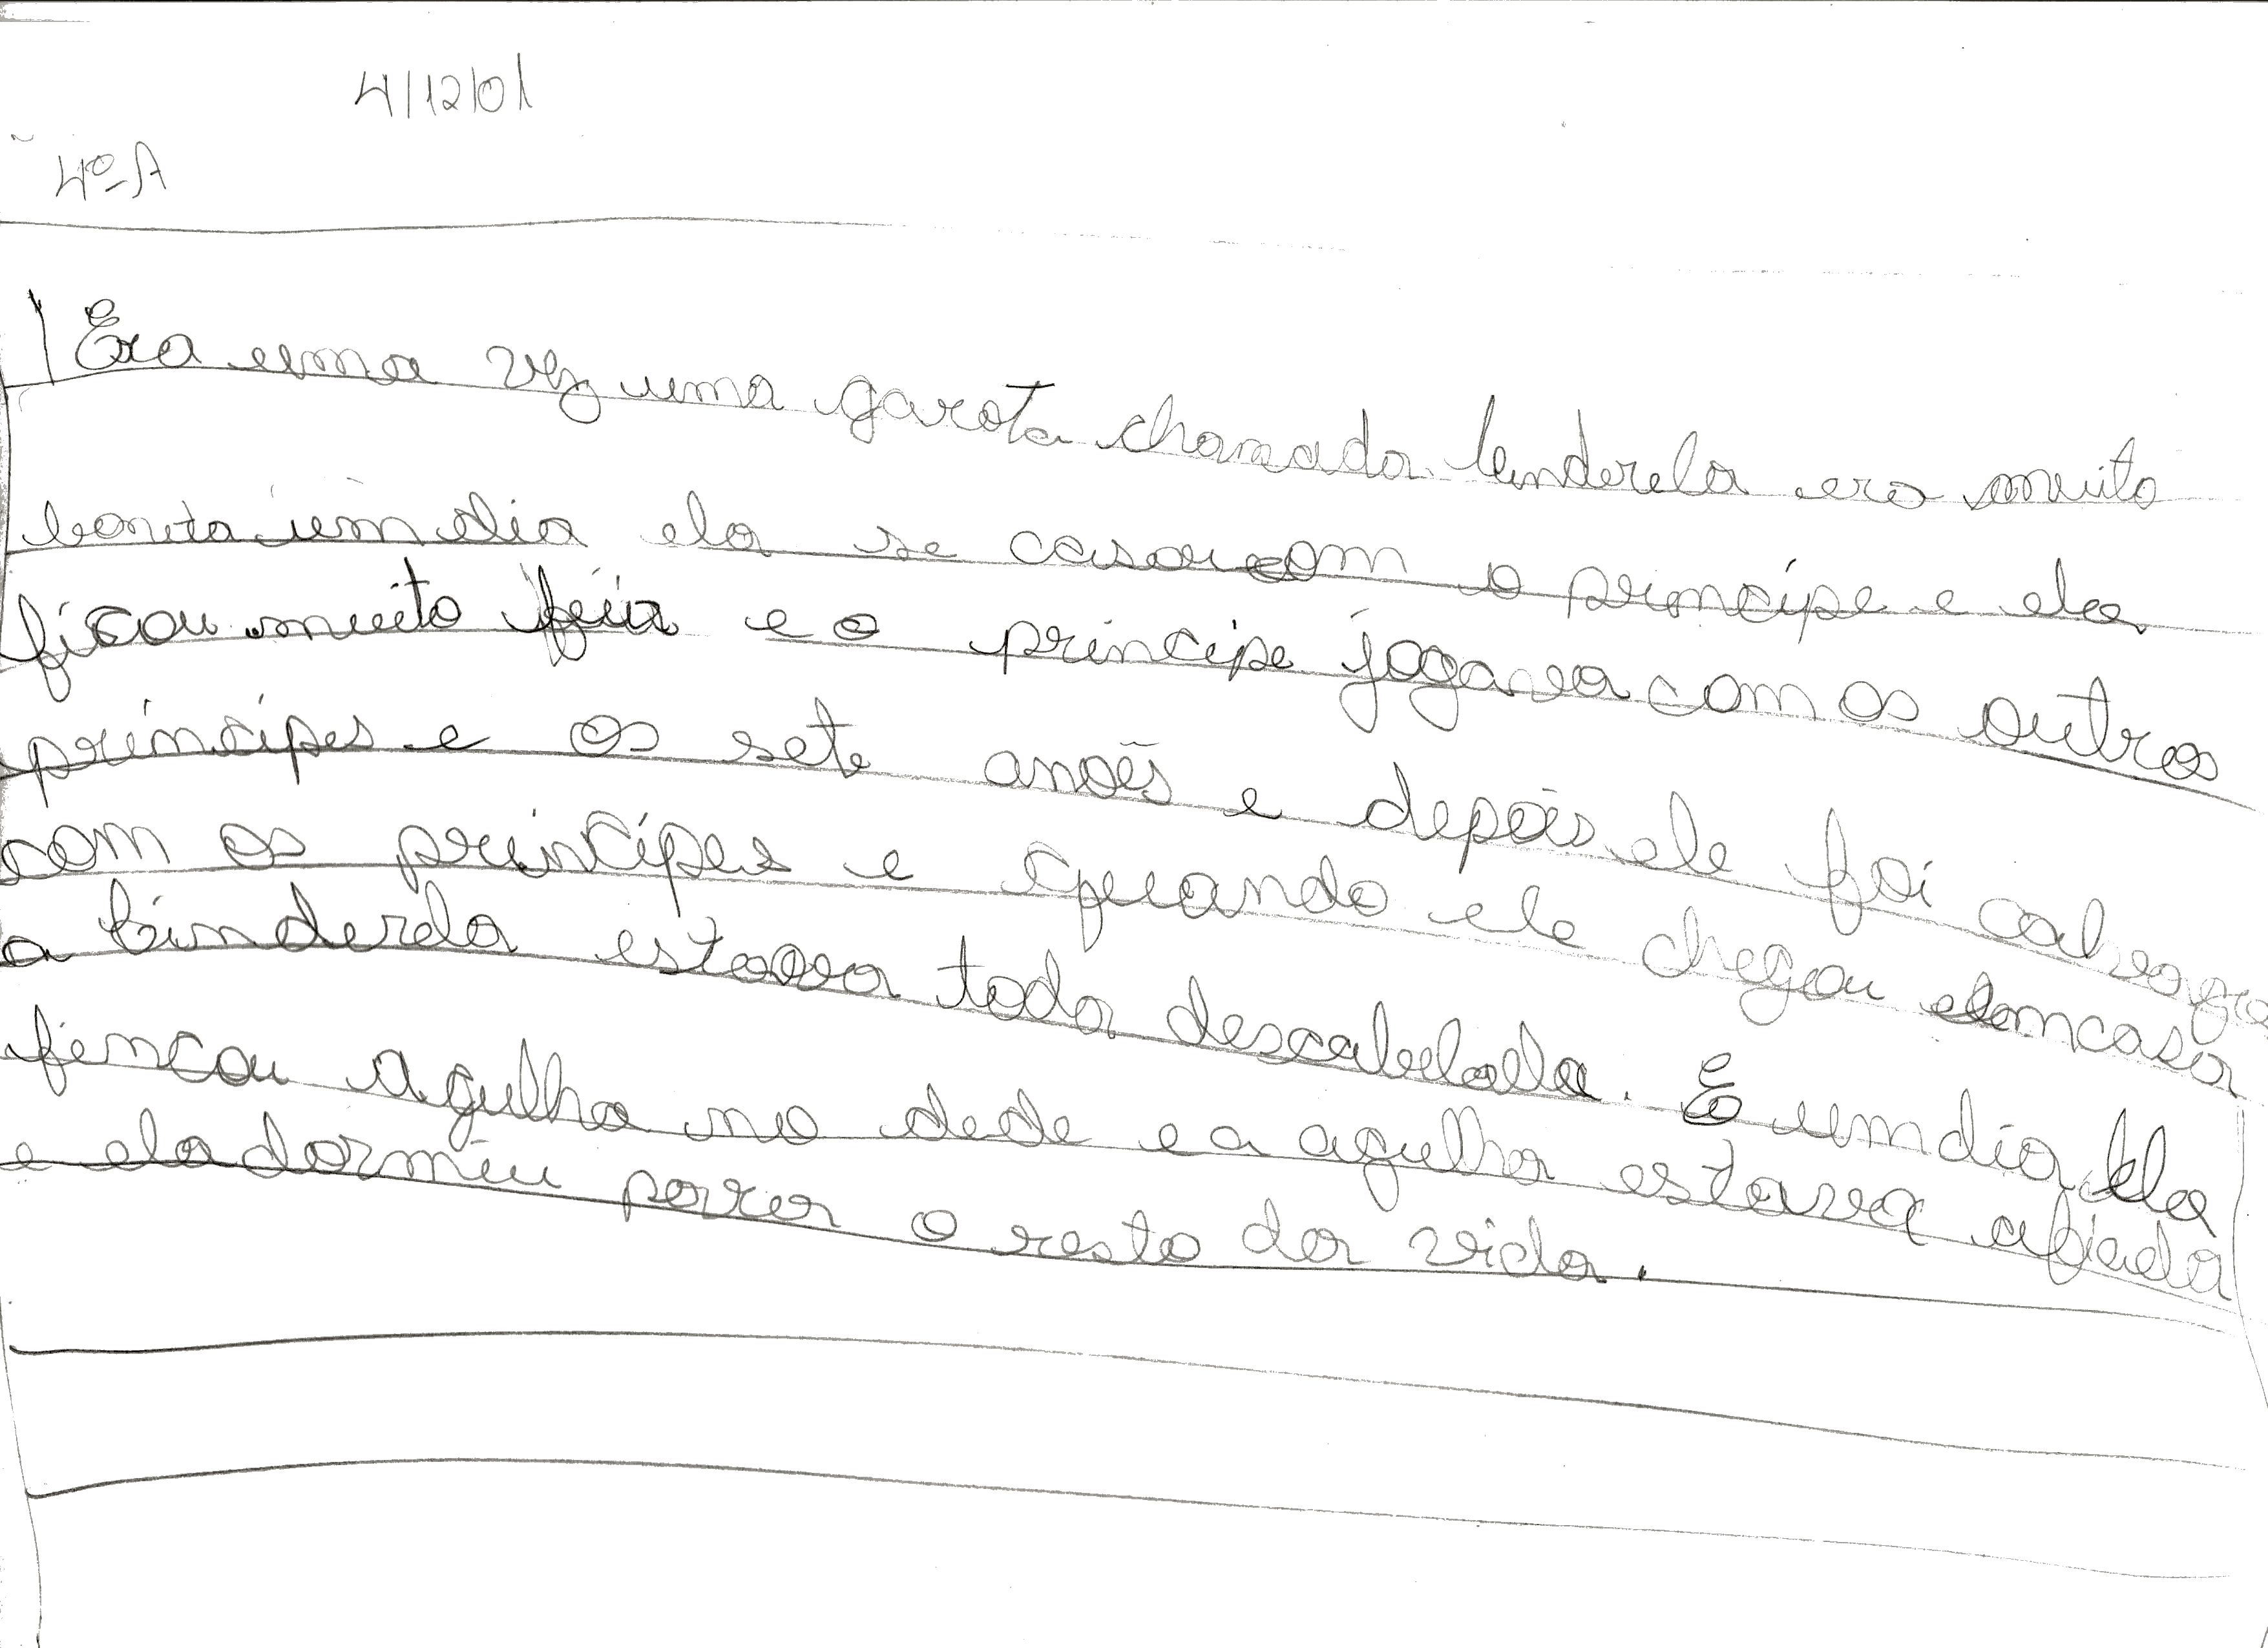 4/12/01
4º A
Era uma vez uma garota chamada Cinderela era muito
bonita um dia ela se casou com o príncipe e ela
ficou muito feia e o príncipe jogava com os outros
príncipes e os sete anoẽs e depois ele foi calvoga
com os príncipes e quando ele chegou em casa
a Cinderela estava toda descabelada. E um dia Ela
fincou agulha no dede e a agulha estava afiada
e ela dormiu parra o resto da vida.